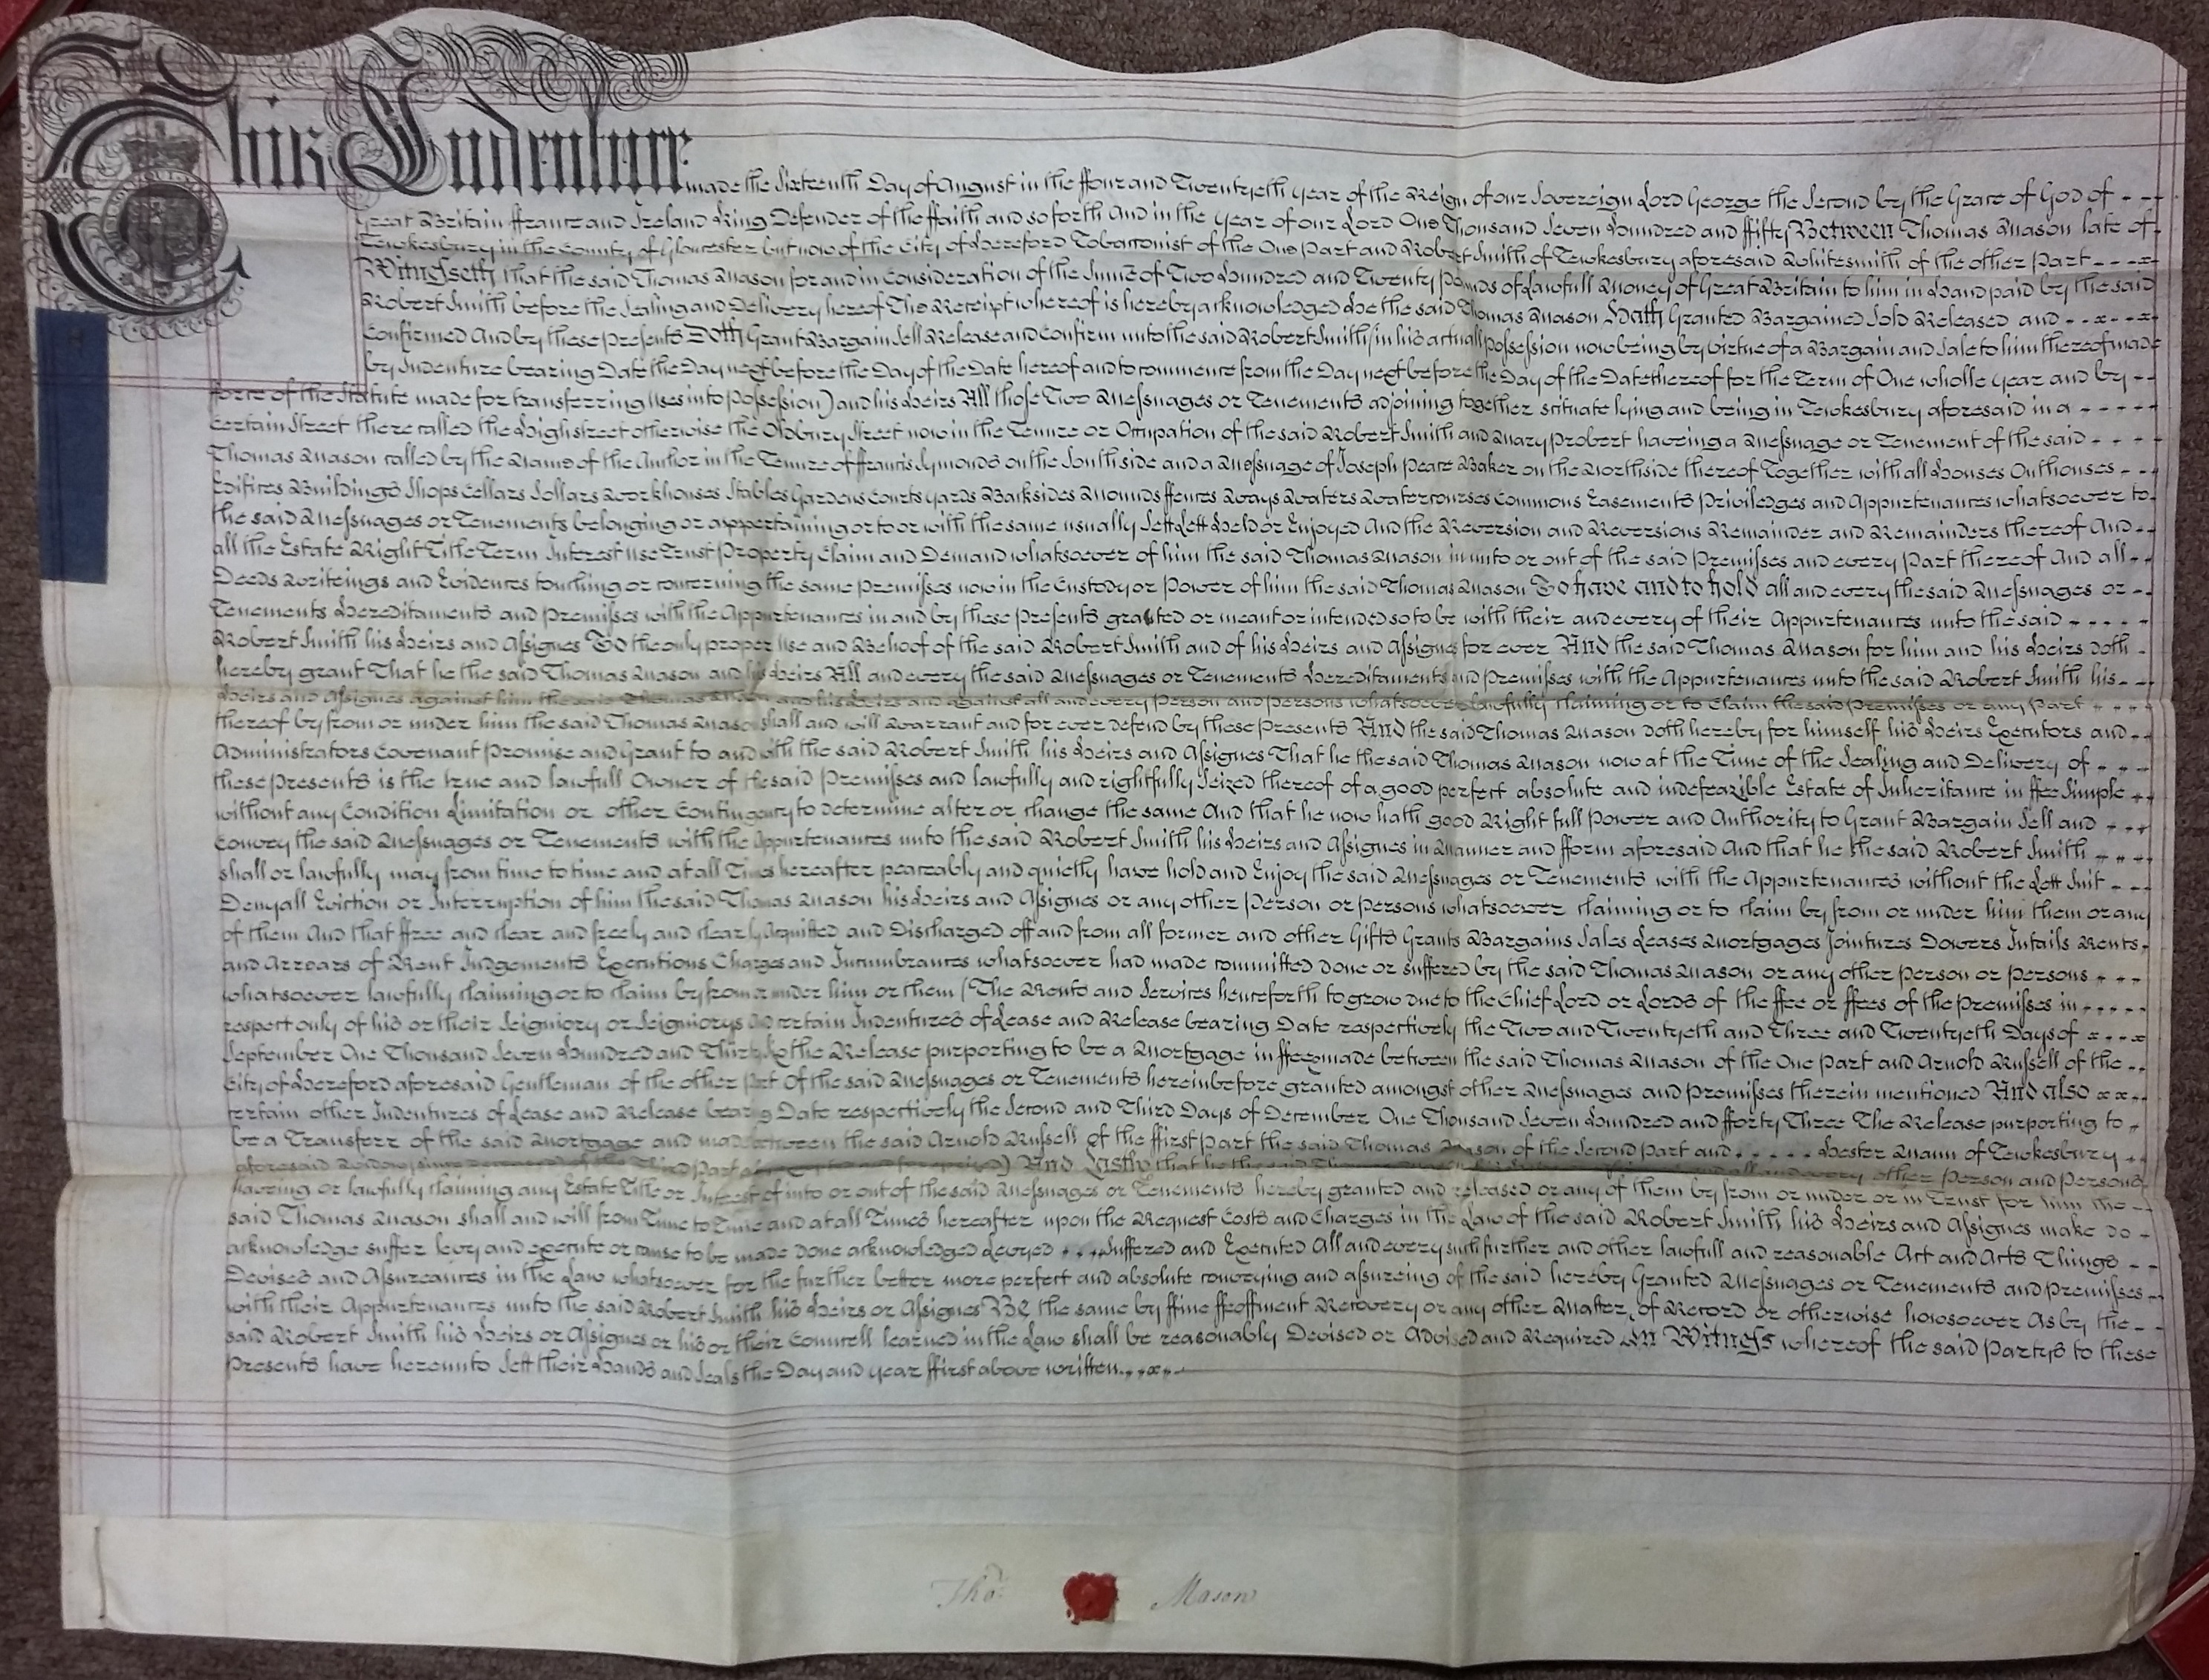 This Indenture made the Sixteenth Day of August in the ffour and Twentyeth year of the Reign of our Sovereign Lord George the Second by the Grace of God of
Great Britain ffrance and Ireland King Defender of the ffaith and so forth And in the year of our Lord One Thousand Seven Hundred and ffifty Between Thomas Mason late of
Tewkesbury in the County of Gloucester but now of the City of Hereford Tobacconist of the One Part and Robert Smith of Tewkesbury aforesaid Whitesmith of the other Part
Witnesseth that the said Thomas Mason for and in Consideration of the Sume of Two Hundred and Twenty Pounds of Lawfull Money of Great Britain to him in Hand paid by the said
Robert Smith before the Sealing and Delivery hereof The Receipt whereof is hereby acknowledged He the said Thomas Mason Hath Granted Bargained Sold Released and
Confirmed And by these Presents Doth Grant Bargain Sell Release and Confirm unto the said Robert Smith (in his actuall possession now being by virtue of a Bargain and Sale to him thereof made
by Indenture bearing Date the Day next before the Day of the Date hereof and to commence from the Day next before the Day of the Date thereof for the Term of One wholle year and by
force of the Statute made for transferring Uses into possession) and his Heirs All those Two Messuages or Tenements adjoining together scituate lying and being in Tewkesbury aforesaid in a
Certain Street there called the Highstreet otherwise the Oldbury Street now in the Tenure or Occupation of the said Robert Smith and Mary Probert having a Messuage or Tenement of the said
Thomas Mason called by the Name of the Anchor in the Tenure of ffrancis Symonds on the South side and a Messuage of Joseph Peace Baker on the North side thereof Together with all Houses Outhouses
Edifices Buildings Shops Cellars Sollars Workhouses Stables Gardens Courts yards Backsides Mounds ffences Ways Waters Watercourses Commons Easements Priviledges and Appurtenances whatsoever to
the said Messuages or Tenements belonging or appertaining or to or with the same usually Sett Lett Held or Enjoyed And the Reversion and Reversions Remainder and Remainders thereof And
all the Estate Right Title Term Interest Use Trust Property Claim and Demand whatsoever of him the said Thomas Mason in unto or out of the said Premisses and every Part thereof And all
Deeds Writeings and Evidences touching or concerning the same premisses now in the Custody or Power of him the said Thomas Mason To have and to hold all and every the said Messuages or
Tenements Hereditaments and premisses with the Appurtenances in and by these presents granted or meant or intended so to be with their and every of their Appurtenances unto the said
Robert Smith his Heirs and Assignes To the only proper Use and Behoof of the said Robert Smith and of his Heirs and Assignes for ever And the said Thomas Mason for him and his Heirs doth
hereby grant That he the said Thomas Mason and his Heirs All and every the said Messuages or Tenements Hereditaments and premisses with the Appurtenances unto the said Robert Smith his
Heirs and Assignes against him the said Thomas Mason and his Heirs and against all and every Person and persons whatsoever lawfully claiming or to claim the said premisses or any part
thereof by from or under him the said Thomas Mason shall and will Warrant and for ever defend by these Presents And the said Thomas Mason doth hereby for himself his Heirs Executors and
Administrators Covenant Promise and Grant to and with the said Robert Smith his Heirs and Assignes That he the said Thomas Mason now at the Time of the Sealing and Delivery of
these presents is the true and lawfull Owner of the said Premisses and lawfully and rightfully Seized thereof of a good perfect absolute and indefeazible Estate of Inheritance in ffee Simple
without any Condition Limitation or other Contingency to determine alter or change the same And that he now hath good Right full Power and Authority to Grant Bargain Sell and
Convey the said Messuages or Tenements with the Appurtenances unto the said Robert Smith his Heirs and Assignes in Manner and fform aforesaid And that he the said Robert Smith
shall or lawfully may from time to time and at all Times hereafter peaceably and quietly have hold and Enjoy the said Messuages or Tenements with the Appurtenances without the Lett Suit
Denyall Eviction or Interruption of him the said Thomas Mason his Heirs and Assignes or any other Person or persons whatsoever claiming or to claim by from or under him them or any
of them And that ffree and clear and freely and clearly Acquitted and Discharged off and from all former and other Gifts Grants Bargains Sales Leases Mortgages Jointures Dowers Intails Rents
and Arrears of Rent Judgements Executions Charges and Incumbrances whatsoever had made committed done or suffered by the said Thomas Mason or any other person or persons
whatsoever lawfully claiming or to claim by from or under him or them (The Rents and Services henceforth to grow due to the Chief Lord or Lords of the ffee or ffees of the premisses in
respect only of his or their Seigniory or Seigniorys certain Indentures of Lease and Release bearing Date respectively the Two and Twentyeth and Three and Twentyeth Days of
September One Thousand Seven Hundred and the Release purporting to be a Mortgage in ffee made between the said Thomas Mason of the One Part and Arnold Russell of the
City of Hereford aforesaid Gentleman of the other Part Of the said Messuages or Tenements hereinbefore granted amongst other Messuages and premisses therein mentioned And also
certain other Indentures of Lease and Release bearing Date respectively the Second and Third Days of December One Thousand Seven Hundred and fforty Three The Release purporting to
be a Transferr of the said Mortgage and made between the said Arnold Russell of the ffirst part the said Thomas Mason of the Second Part and Hester Mann of Tewkesbury
aforesaid Widow since deceased of the Third Part And Lastly that he the said and all and every other Person and Persons
having or lawfully claiming any Estate Title or Interest of into or out of the said Messuages or Tenements hereby granted and released or any of them by from or under or in Trust for him the
said Thomas Mason shall and will from Time to Time and at all Times hereafter upon the Request Costs and Charges in the Law of the said Robert Smith his Heirs and Assignes make do
acknowledge suffer levy and execute or cause to be made done acknowledged Levyed Suffered and Executed All and every such further and other lawfull and reasonable Act and Acts Things
Devises and Assureances in the Law whatsoever for the further better more perfect and absolute conveying and assureing of the said hereby Granted Messuages or Tenements and premisses
with their Appurtenances unto the said Robert Smith his Heirs or Assignes Be the same by ffine ffeoffment Recovery or any other Matter of Record or otherwise howsoever As by the
said Robert Smith his Heirs or Assignes or his or their Councell learned in the Law shall be reasonably Devised or Advised and Required In Witness whereof the said Partys to these
Presents have hereunto Sett their Hands and Seals the Day and year ffirst above written
Thos. Mason